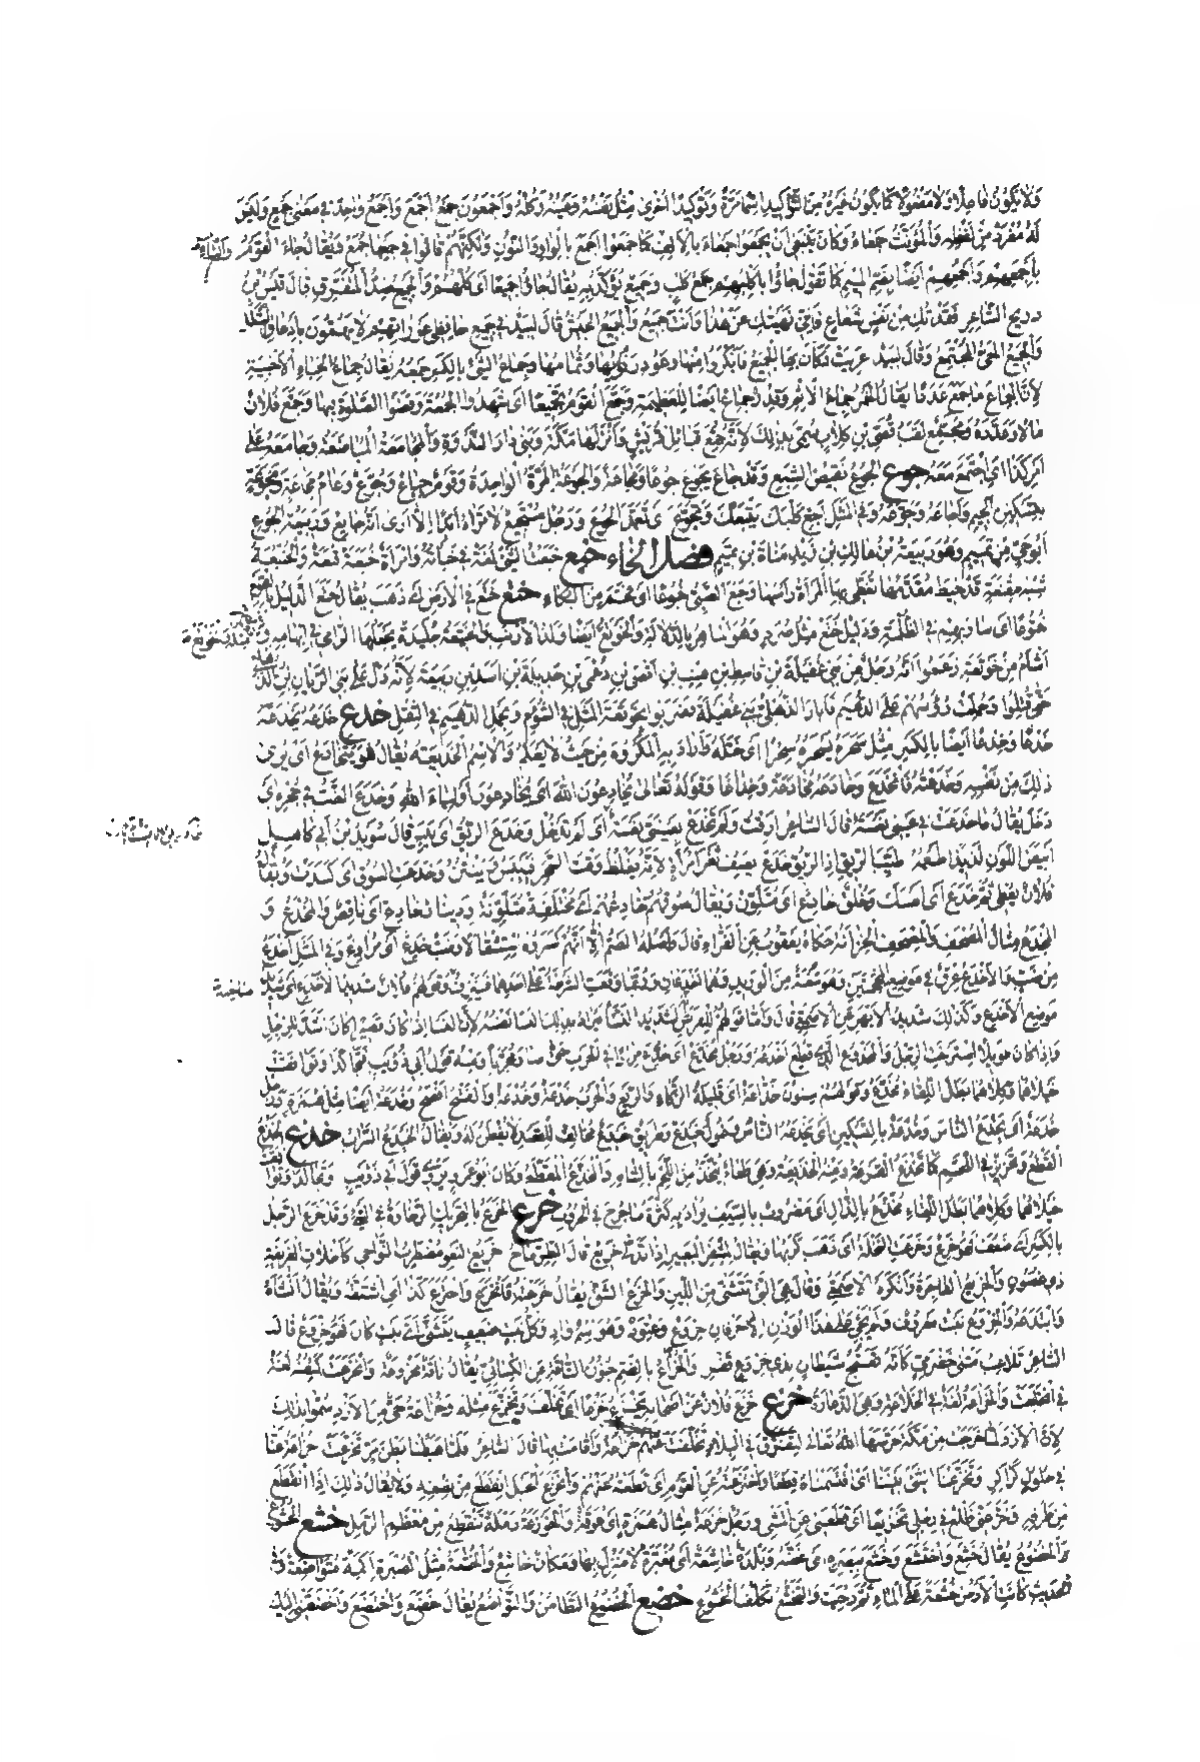 ولا يكون فاعلا ولا مفعولا كما يكون غيره من التواكيد اسما مرة وتوكيدا اخرى مثل نفسه وعينه وكله وأجمعون جمع أجمع وأجمع واحد في معنى جمع وليس
له مفرد من لفظه والمؤنث جمعاء وكان ينبغى أن يجمعوا جمعاء بالألف كما جمعوا أجمع بالواو والنون ولكنهم قالوا في جمعها جمع ويقال جاء القوم
بأجمعهم وأجمعهم أيضا بضم الميم كما تقول جاؤا بأكلبهم جمع كلب وجميع يؤكد به يقال جاؤا جميعا اى كلهم والجميع ضد المتفرق قال قيس بن
ذريح الشاعر فقدتك من نفس شعاع فانني نهيتك عن هذا وأنت جميع والجميع الجيش قال لبيد في جميع حافظى عوراتهم لا يهمون بادعاق الشلل
والجميع الحى المجتمع وقال لبيد عريت وكان بها الجميع فابكروا منها وغودر نؤيها وثمامها وجماع الشئ بالكسر جمعه يقال جماع الخباء الأخبية
لأن الجماع ما جمع عددا يقال الخمر جماع الاثم وقدر جماع أيضا للعظيمة وجمع القوم تجميعا اى شهدوا الجمعة وقضوا الصلوة بها وجمع فلان
مالا وعدده ومجمع لقب قصى بن كلاب سمى بذلك لأنه جمع قبائل قريش وأنزلها مكة وبنى دار الندوة والمجامعة المباضعة وجامعه على
امر كذا اى اجتمع معه جوع الجوع نقيض الشبع وقد جاع يجوع جوعا ومجاعة والجوعة المرة الواحدة وقوم جياع وجوع وعام مجاعة ومجوعة
بتسكين الجيم وأجاعه وجوعه وفي المثل أجع كلبك يتبعك وتجوع اى تعمد الجوع ورجل مستجيع لا تراه أبدا إلا ترى انه جايع وربيعة الجوع
أبو حى من تميم وهو ربيعة بن مالك بن زيد مناة بن تميم فصل الخاء خبع خبعت الشئ لغة في خبأته وامرأة خبعة قبعة والخنبعة
شبه مقنعة قد خيط مقدمها تغطى بها المرأة رأسها وخبع الصبى خبوعا اى فحم من البكاء ختع ختع في الأرض اى ذهب يقال ختع الدليل بالقوم
ختوعا اى سار بهم في الظلمة ودليل ختع مثل صرد وهو الماهر بالدلالة والخوتع أيضا ولد الأرنب والختيعة جليدة يجعلها الرامى في إبهامه
أشأم من خوتعة زعموا انه رجل من بنى غفيلة بن قاسط بن هنب بن أفصى بن دعمى بن جديلة بن أسد بن ربيعة لأنه دل على بنى الزبان بن
حتى قتلوا وحملت رؤسهم على الدهيم فأبار الذهلى بنى غفيلة فضربوا بخوتعة المثل في الشؤم وبحمل الدهيم في الثقل خدع خدعه يخدعه
خدعا وخدعا أيضا بالكسر مثل سحره يسحره سحرا اى ختله وأراد به المكروه من حيث لا يعلم والاسم الخديعة يقال هو يتخادع اى يرى
ذلك من نفسه وخدعته فانخدع وخادعه مخادعة وخداعا وقوله تعالى يخادعون الله اى يخادعون أولياء الله وخدع الضب في جحره اى
دخل يقال ما خدعت في عينى نعسة قال الشاعر أرقت ولم تخدع بعينى نعسة اى لم تدخل وخدع الريق اى يبس قال سويد بن أبى كاهل
أبيض اللون لذيذا طعمه طيب الريق إذا الريق خدع يصف ثغر امرأة لأنه يغلظ وقت السحر فييبس وينتن وخدعت السوق اى كسدت ويقال
فلان يعطى ثم خدع اى أمسك وخلق خادع اى متلون ويقال سوقهم خادعة اى مختلفة متلونة ودينار خادع اى ناقص والمخدع و
المخدع مثال المصحف والمصحف الخزانة حكاه يعقوب عن الفراء قال وأصله الضم إلا انهم كسروه استثقالا وضب خدع اى مراوغ وفي المثل أخدع
من ضب والأخدع عرق في موضع المحجمتين وهو شعبة من الوريد وهما أخدعان وربما وقعت الشرطة على أحدهما فينزف وقولهم فلان شديد الأخدع اى شديد
موضع الأخدع وكذلك شديد الأبهر عن الأصمعى قال وأما قولهم للفرس شديد النسا فيراد بذلك النسا نفسه لأن النسا إذا كان قصيرا كان أشد للرجل
وإذا كان طويلا استرخت الرجل والمخدوع الذى قطع أخدعه ورجل مخدع اى خدع مرارا في الحرب حتى صار مجربا ومنه قول أبى ذؤيب فتنازلا وتواقفت
خيلاهما وكلاهما بطل اللقاء مخدع وقولهم سنون خداعة اى قليلة الزكاء والريع والحرب خدعة وخدعة والفتح أفصح وخدعة أيضا مثل همزة ورجل
خدعة اى يخدع الناس وخدعة بالتسكين اى يخدعه الناس وغول خيدع وطريق خيدع مخالف للقصد لا يفطن له ويقال الخيدع السراب خذع الخذع
القطع وتحزيز في اللحم كما تخذع القرعة ومنه الخذيعة وهى طعام يتخذ من اللحم بالشام والمخذع المقطع وكان أبو عمرو يروى قول أبى ذؤيب وتجالدا وتواقفت
خيلاهما وكلاهما بطل اللقاء مخذع بالذال اى مضروب بالسيف يراد به كثرة ما جرح في الحروب خرع الخرع بالتحريك الرخاوة في الشئ وقد خرع الرجل
بالكسر اى ضعف فهو خرع وخرعت النخلة اى ذهب كربها ويقال لمشفر البعير إذا تدلى خريع قال الطرماح خريع النعو مضطرب النواحى كأخلاق الغريفة
ذى غضون والخريع الفاجرة وأنكره الأصمعى وقال هى التى تتثنى من اللين والخرع الشق يقال خرعته فانخرع واخترع كذا اى اشتقه ويقال أنشأه
وابتدعه والخروع نبت معروف ولم يجئ على هذا الوزن إلا حرفان خروع وعتود وهو اسم واد وكل نبت ضعيف يتثنى اى نبت كان فهو خروع قال
الشاعر تلاعب مثنى حضرمى كأنه تعمج شيطان بذى خروع قفر والخراع بالضم جنون الناقة عن الكسائى يقال ناقة مخروعة وانخرعت كتفه لغة
في انخلعت والخراعة لغة في الخلاعة وهى الدعارة خزع خزع فلان عن أصحابه يخزع خزعا اى تخلف وتخزع مثله وخزاعة حى من الأزد سموا بذلك
لأن الأزد لما خرجت من مكة حرسها الله تعالى لتتفرق في البلاد تخلفت عنهم خزاعة وأقامت بها قال الشاعر فلما هبطنا بطن مر تخزعت خزاعة عنا
في حلول كراكر وتخزعنا الشئ بيننا اى اقتسمناه قطعا واختزعته عن القوم اى قطعته عنهم وانخزع الحبل انقطع من نصفه ولا يقال ذلك إذا انقطع
من طرفه وخزعنى ظلع في رجلى تخزيعا اى قطعنى عن المشى ورجل خزعة مثال همزة اى عوقة والخوزعة رملة تنقطع من معظم الرمل خشع الخشوع
الخضوع يقال خشع واختشع وخشع ببصره اى غضه وبلدة خاشعة اى مغبرة لا منزل بها ومكان خاشع والخشعة مثال الصبرة أكمة متواضعة وفي
الحديث كانت الأرض خشعة على الماء ثم دحيت والتخشع تكلف الخشوع خضع الخضوع التطامن والتواضع يقال خضع واختضع وأخضعتنى إليك